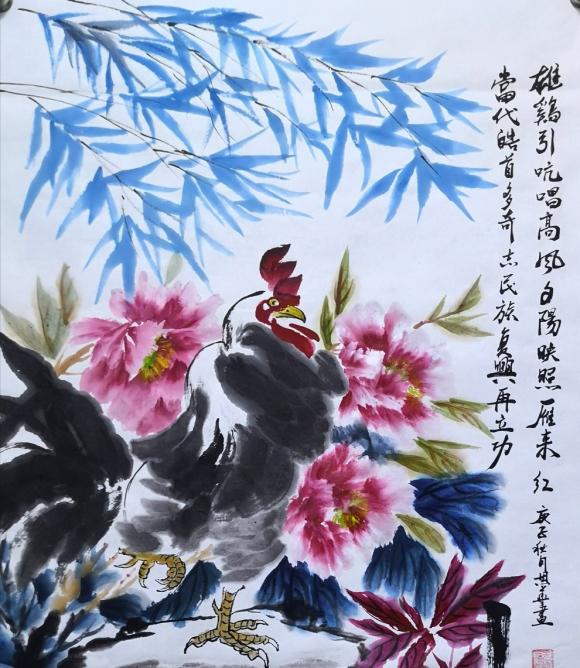 雄鷄引吭唱高風夕陽映照雁来红
當代皓首多奇志民族复興再立功
庚子秋月 画